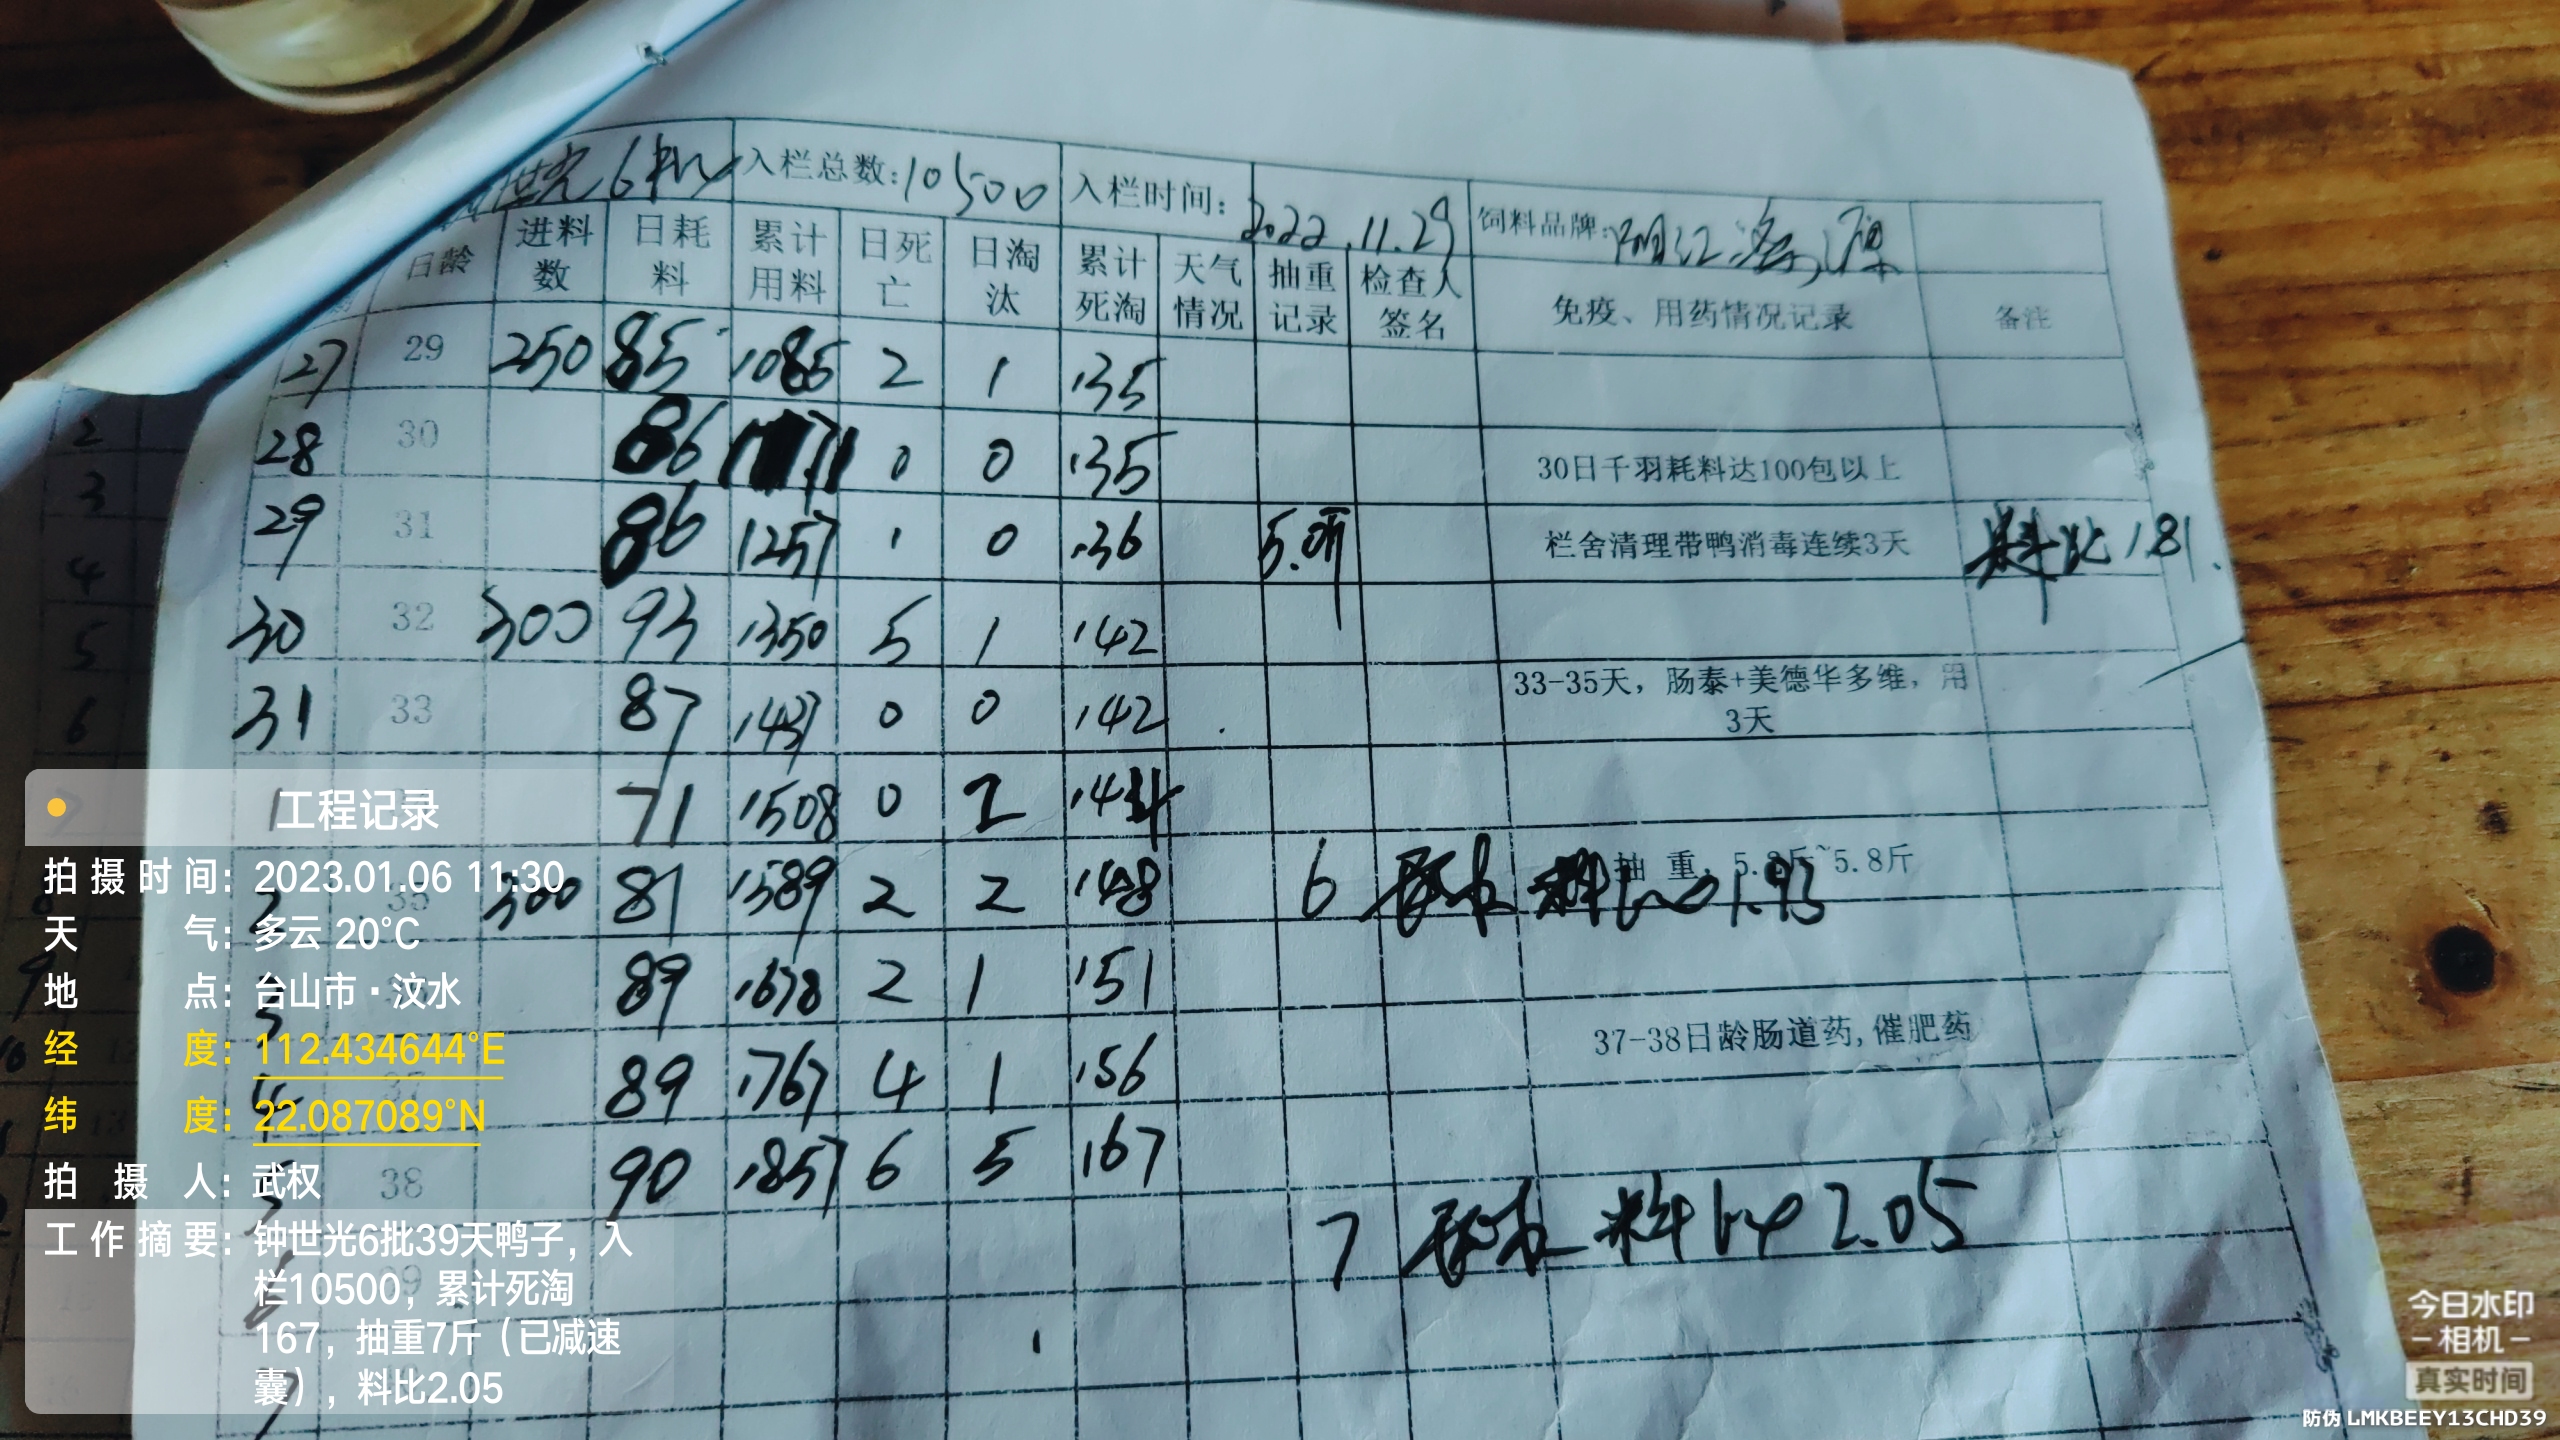 世光6批 入栏总数:10500 入栏时间: 2022.11.29 饲料品牌:阳江海
日龄 进料数 日耗料 累计用料 日死亡 日淘汰 累计死淘 天气情况 抽重记录 检查人签名 免疫、用药情况记录 备注
27 29 250 85 1085 2 1 135
28 30 86 0 0 135 30日千羽耗料达100包以上
29 31 86 1257 1 0 136 5.0斤 栏舍清理带鸭消毒连续3天 料比1.81
30 32 300 93 1350 5 1 142
31 33 87 1437 0 0 142 33-35天，肠泰+美德华多维，用3天
1 71 1508 0 2 144
2 35 300 81 1589 2 2 148 6 料比1.93 抽 重 ~5.8斤
3 89 1678 2 1 151
4 37 89 1767 4 1 156 37-38日龄肠道药,催肥药
5 38 90 1857 6 5 167
7 料比2.05
6 39
7
2
3
4
5
6
工程记录
拍摄时间: 2023.01.06 11:30
天气: 多云 20°C
地点: 台山市·汶水
经度: 112.434644°E
纬度: 22.087089°N
拍摄人: 武权
工作摘要: 钟世光6批39天鸭子，入
栏10500，累计死淘
167，抽重7斤（已减速
囊），料比2.05
今日水印
-相机-
真实时间
防伪 LMKBEEY13CHD39